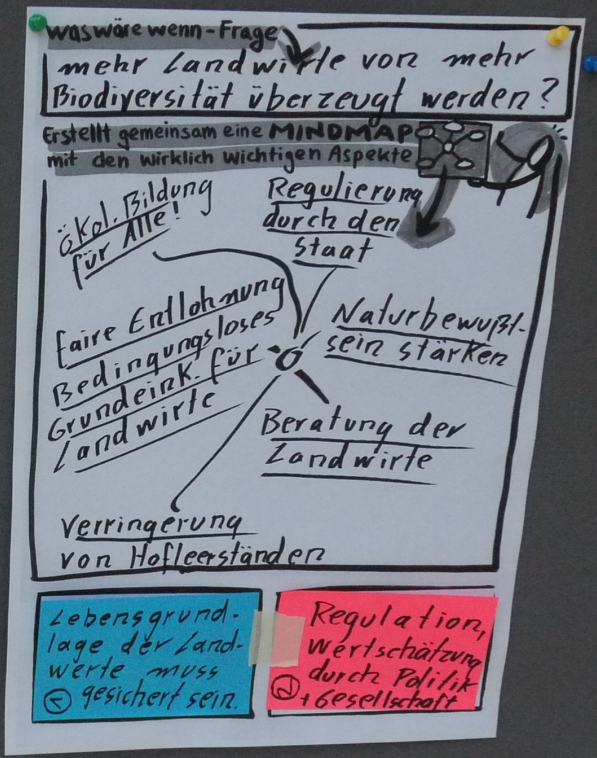 was wäre wenn-Frage
mehr Landwirte von mehr
Biodiversität überzeugt werden?
Erstellt gemeinsam eine MINDMAP
mit den wirklich wichtigen Aspekte
Ökol. Bildung
für Alle!
Regulierung
durch den
Staat
faire Entlohnung
Bedingungsloses
Grundeink. für
Landwirte
Naturbewußt-
sein stärken
Beratung der
Landwirte
Verringerung
von Hofleerständen
Lebensgrund-
lage der Land-
werte muss
1 gesichert sein.
Regulation,
Wertschätzung
durch Politik
2 + Gesellschaft